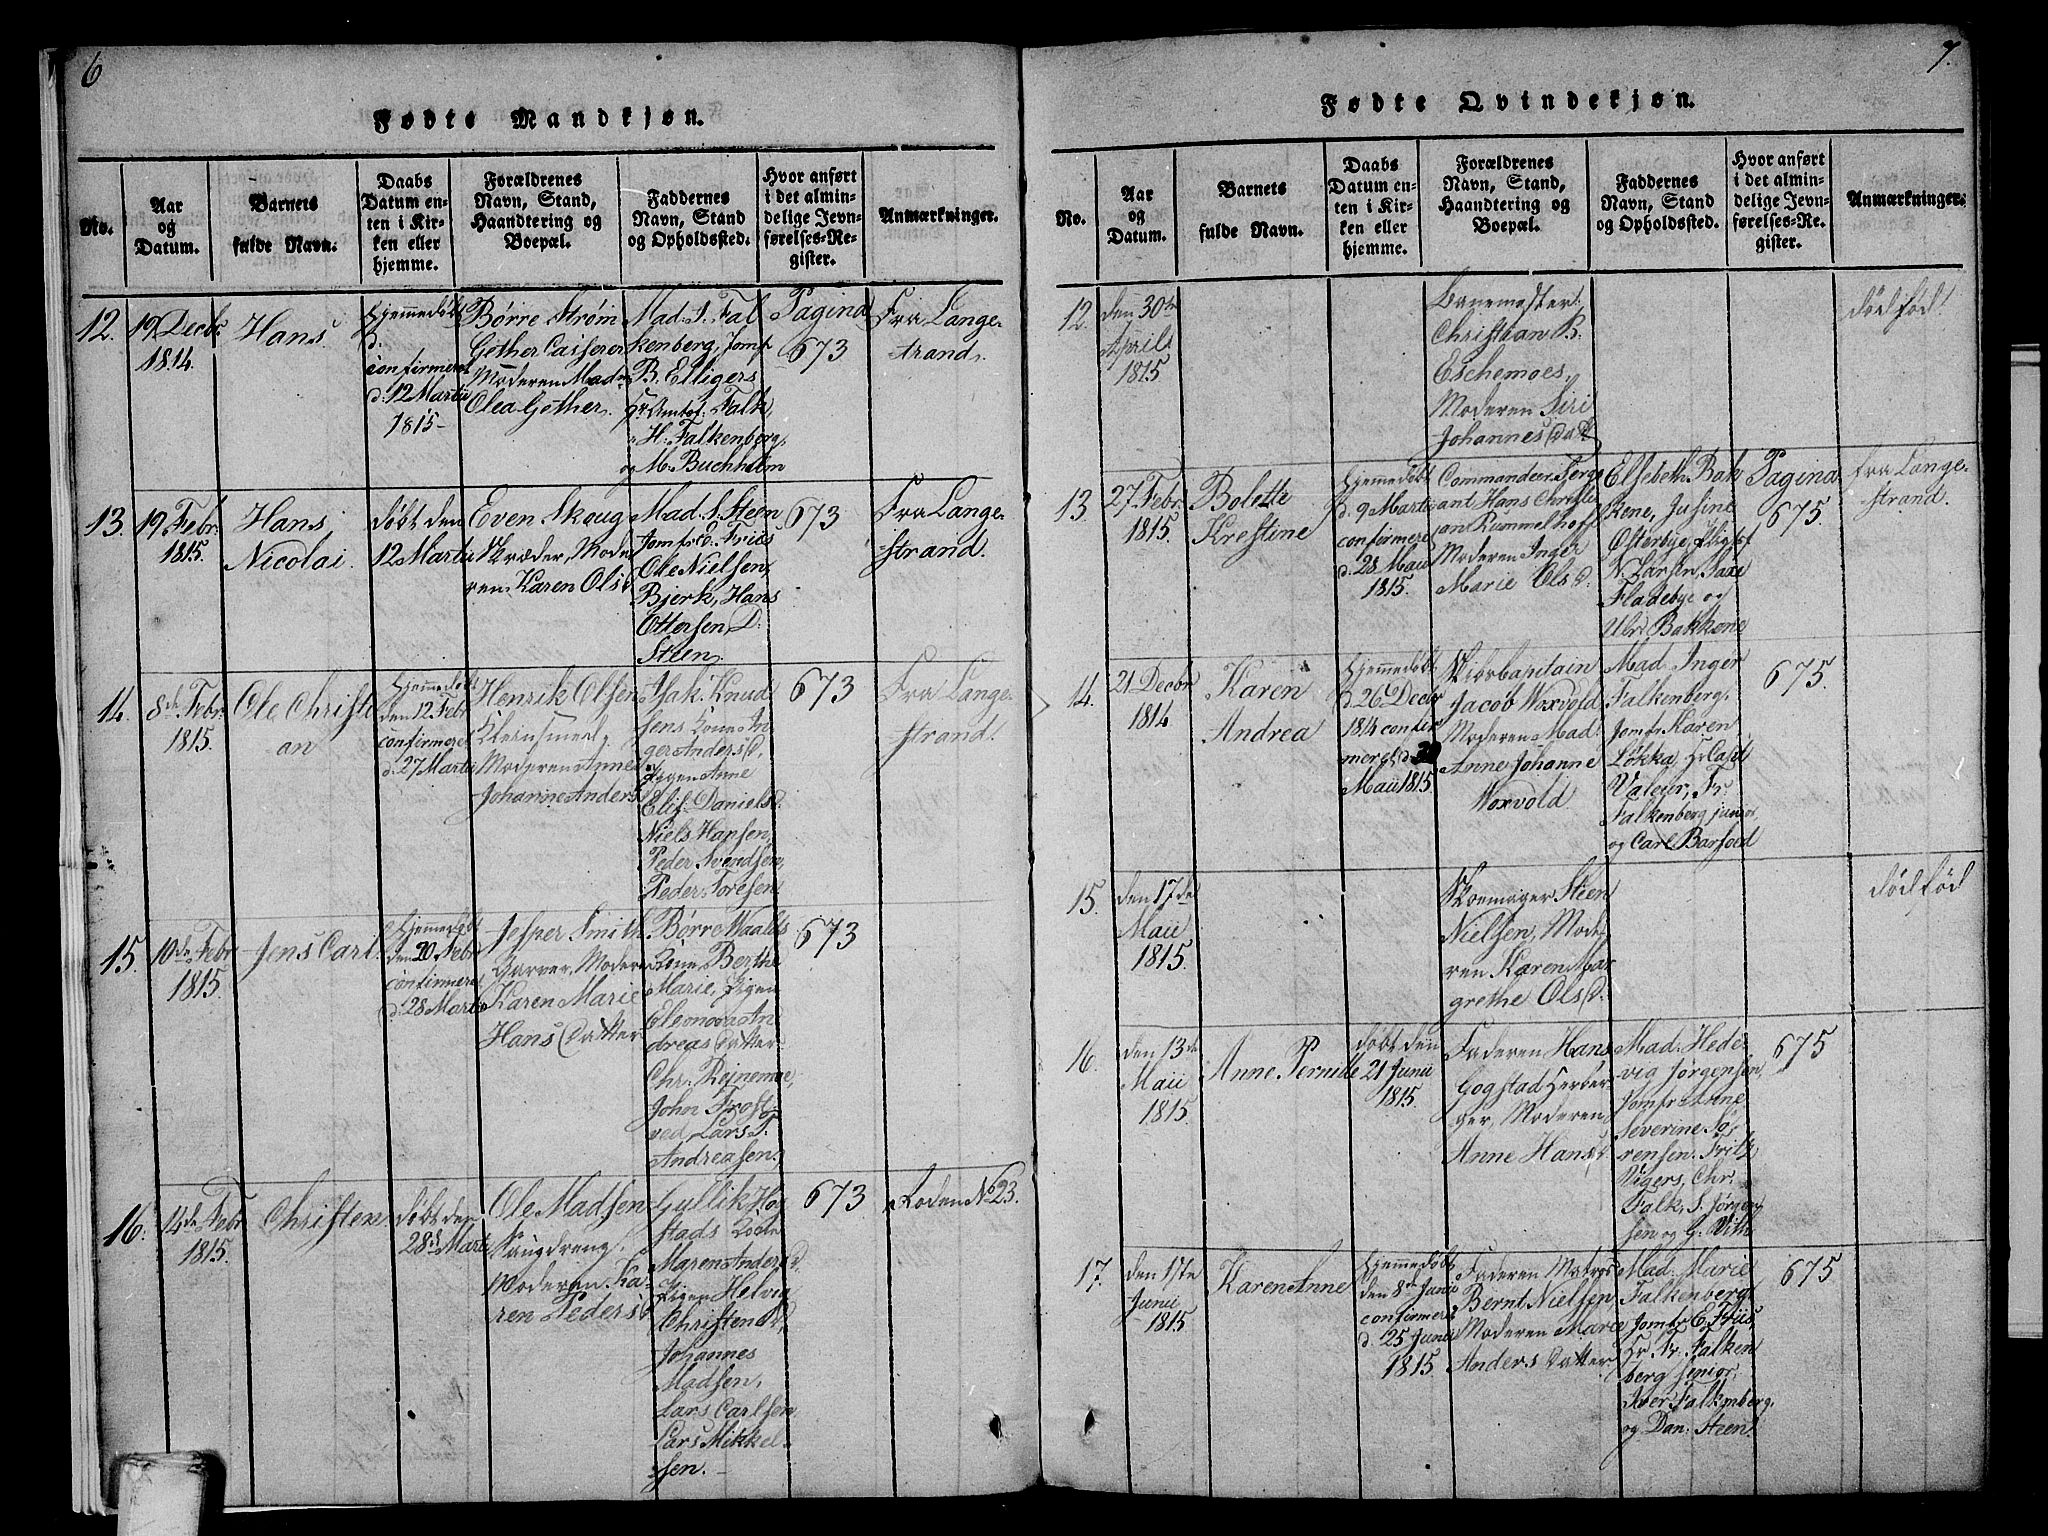 6
Fødte Mandkjøn.
No.
Aar
og
Datum.
Barnets
fulde Navn.
Daabs
Datum en-
ten i Kir-
ken eller
hjemme.
Forældrenes
Navn, Stand,
Haandtering og
Boepæl.
Faddernes
Navn, Stand
og Opholdssted.
Hvor anført
i det almin-
delige Jevn-
førelses-Re-
gister.
Anmærkninger.
12.
19 Decbr
1814.
Hans
Hjemmedøbt
d.
confirmeret
d: 12 Martii
1815-
Børre Strøm
Gether
Moderen Mad
Olea Gether.
Mad. S. Fal
kenberg, Jomf
B. Elligers
Falk,
H: Falkenberg,
og M. Buchholm
Pagina
673
Fra Lange-
strand.
13.
19 Febr.
1815.
Hans
Nicolai.
døbt den
12 Martii
Even Skoug
Skræder, Mode
ren Karen Olsd
Mad. S. Steen
Jomfr d. Friis
Ole Nielsen,
Bjerk, Hans
Ottersen, D.
Steen.
673
Fra Lange-
strand.
14.
8de Febr.
1815.
Ole Christi
an
Hjemmedøbt
den 12 Febr
confirmeret
d. 27 Martii
Henrik Olsen
Kleinsmed,
Moderen Anne
Johanne Andersd
Isak Knud
sens Kone In
ger Andersd,
Pigen Anne
Elis. Danielsd
Niels Hansen,
Peder Svendsen,
Peder Toresen
673
Fra Lange-
strand!
15.
10de Febr
1815.
Jens Carl.
Hjemmedøbt
den 20 Febr
confirmeret
d. 28 Martii
Jesper Smith
Garver, Moderen
Karen Marie
Hans Datter
Børre Waalds
Kone Berthe
Marie, Pigen
Eleonora An
dreas Datter
Chr. Rejnemoe,
John Frost
ved, Lars T.
Andreasen.
673
16.
14de Febr
1815.
Christen
døbt den
28de Martii
Ole Madsen
Saugdreng,
Moderen Ka-
ren Pedersd
Gullik Hog
stads Kone
Maren Andersd.
Pigen Helvig
Christend,
Johannes
Madsen,
Lars Carlsen
Lars Mikkel-
sen.
673
Roden No 23.
7.
Fødte Qvindekjøn.
No.
Aar
og
Datum.
Barnets
fulde Navn.
Daabs
Datum en-
ten i Kir-
ken eller
hjemme.
Forældrenes
Navn, Stand,
Haandtering og
Boepæl.
Faddernes
Navn, Stand
og Opholdssted.
Hvor anført
i det almin-
delige Jevn-
førelses-Re-
gister.
Anmærkninger.
12.
den 30te
Aprils
1815
Christian R.
Eschemoes,
Moderen Siri
Johannes Datt
dødfød!
13.
27 Febr.
1815.
Bolette
Krestine
Hjemmedøbt
d. 9 Martii
confirmeret
d. 28 Maii
1815.
Commandeer Serge
ant Hans Christi
jan Rummelhoff
Moderen Inger
Marie Olsd.
Elsebeth Bak
kene, Jusine
Østerbye,
N. Larsen, Saxe
Fladebye og
Ulr. Bakkene
Pagina
675.
fra Lange-
strand.
14.
21 Decbr
1814
Karen
Andrea
Hjemmedøbt
d. 26 Decbr
1814 confir
meret d. 28
Maii 1815.
Skibscapitain
Jacob Woxvold
Moderen Mad.
Anne Johanne
Woxvold.
Mad. Inger
Falkenberg,
Jomfr Karen
Løkka, Hr Capt
Valeur, Fr.
Falkenberg junior,
og Carl Barfoed
675.
15.
den 17de
Maii
1815.
Skoemager Steen
Nielsen, Mode
ren Karen Mar
grethe Olsd.
dødfød
16.
den 13de
Maii
1815.
Anne Pernille
døbt den
21 Junii
1815.
Faderen Hans
Gogstad Herber
ger, Moderen
Anne Hansd.
Mad. Hede-
vig Jørgensen,
Jomfr Anne
Severine Sø
rensen. Fritz
Vigers, Chr.
Falk, S. Jørgen
sen og G. Vith
675
17.
den 1ste
Junii
1815
Karen Anne
Hjemmedøbt
den 8de Junii
confirmeret
d. 25 Junii
1815.
Faderen Matros
Bernt Nielsen,
Moderen Marie
Anders Datter.
Mad. Marie
Falkenberg
Jomfr E. Friis,
Hr Fr. Falken
berg senior,
Iver Falkenberg,
og Dan. Steen.
675